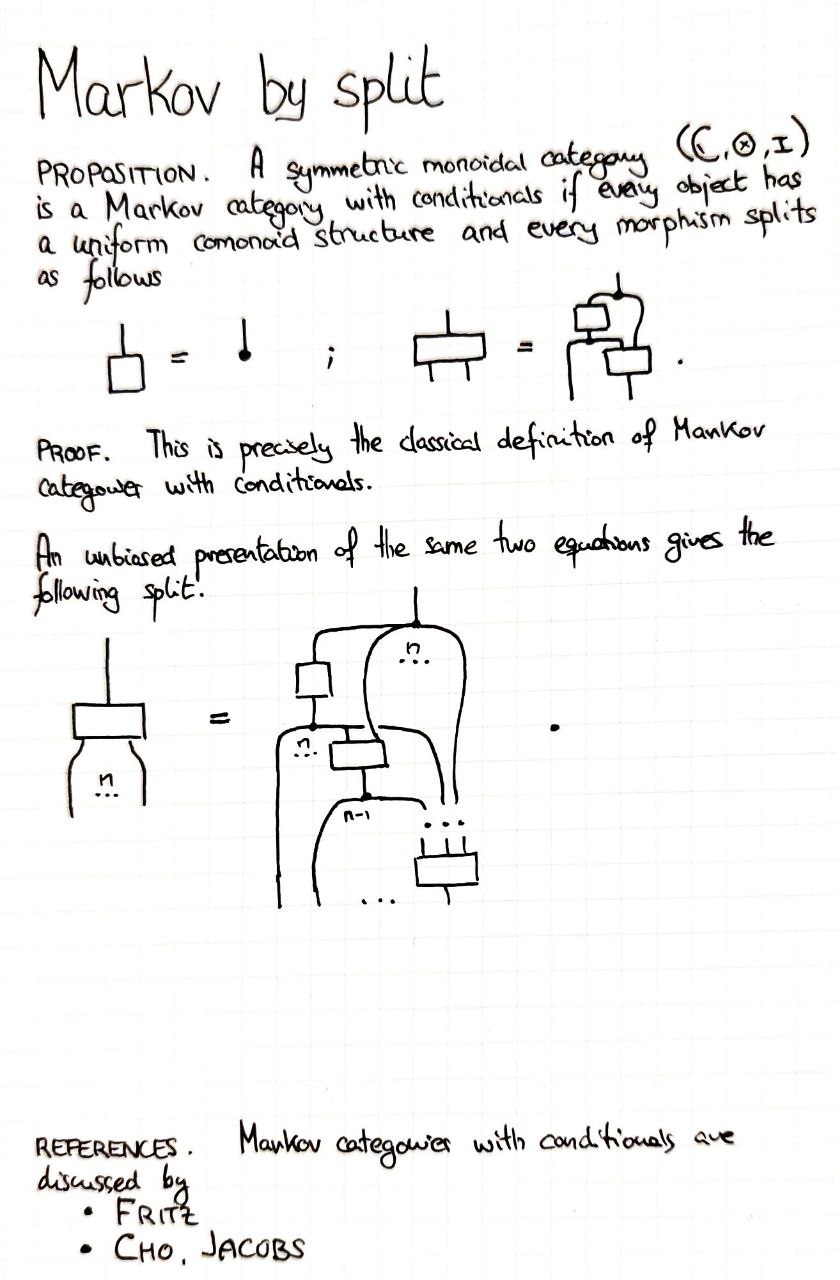 Markov by split
PROPOSITION. A symmetric monoidal category (ℂ,⊗,I)
is a Markov category with conditionals if every object has
a uniform comonoid structure and every morphism splits
as follows
= ; = .
PROOF. This is precisely the classical definition of Markov
categories with conditionals.
An unbiased presentation of the same two equations gives the
following split.
n
...
n
...
= .
n
...
n-1
...
...
REFERENCES. Markov categories with conditionals are
discussed by
• FRITZ
• CHO, JACOBS